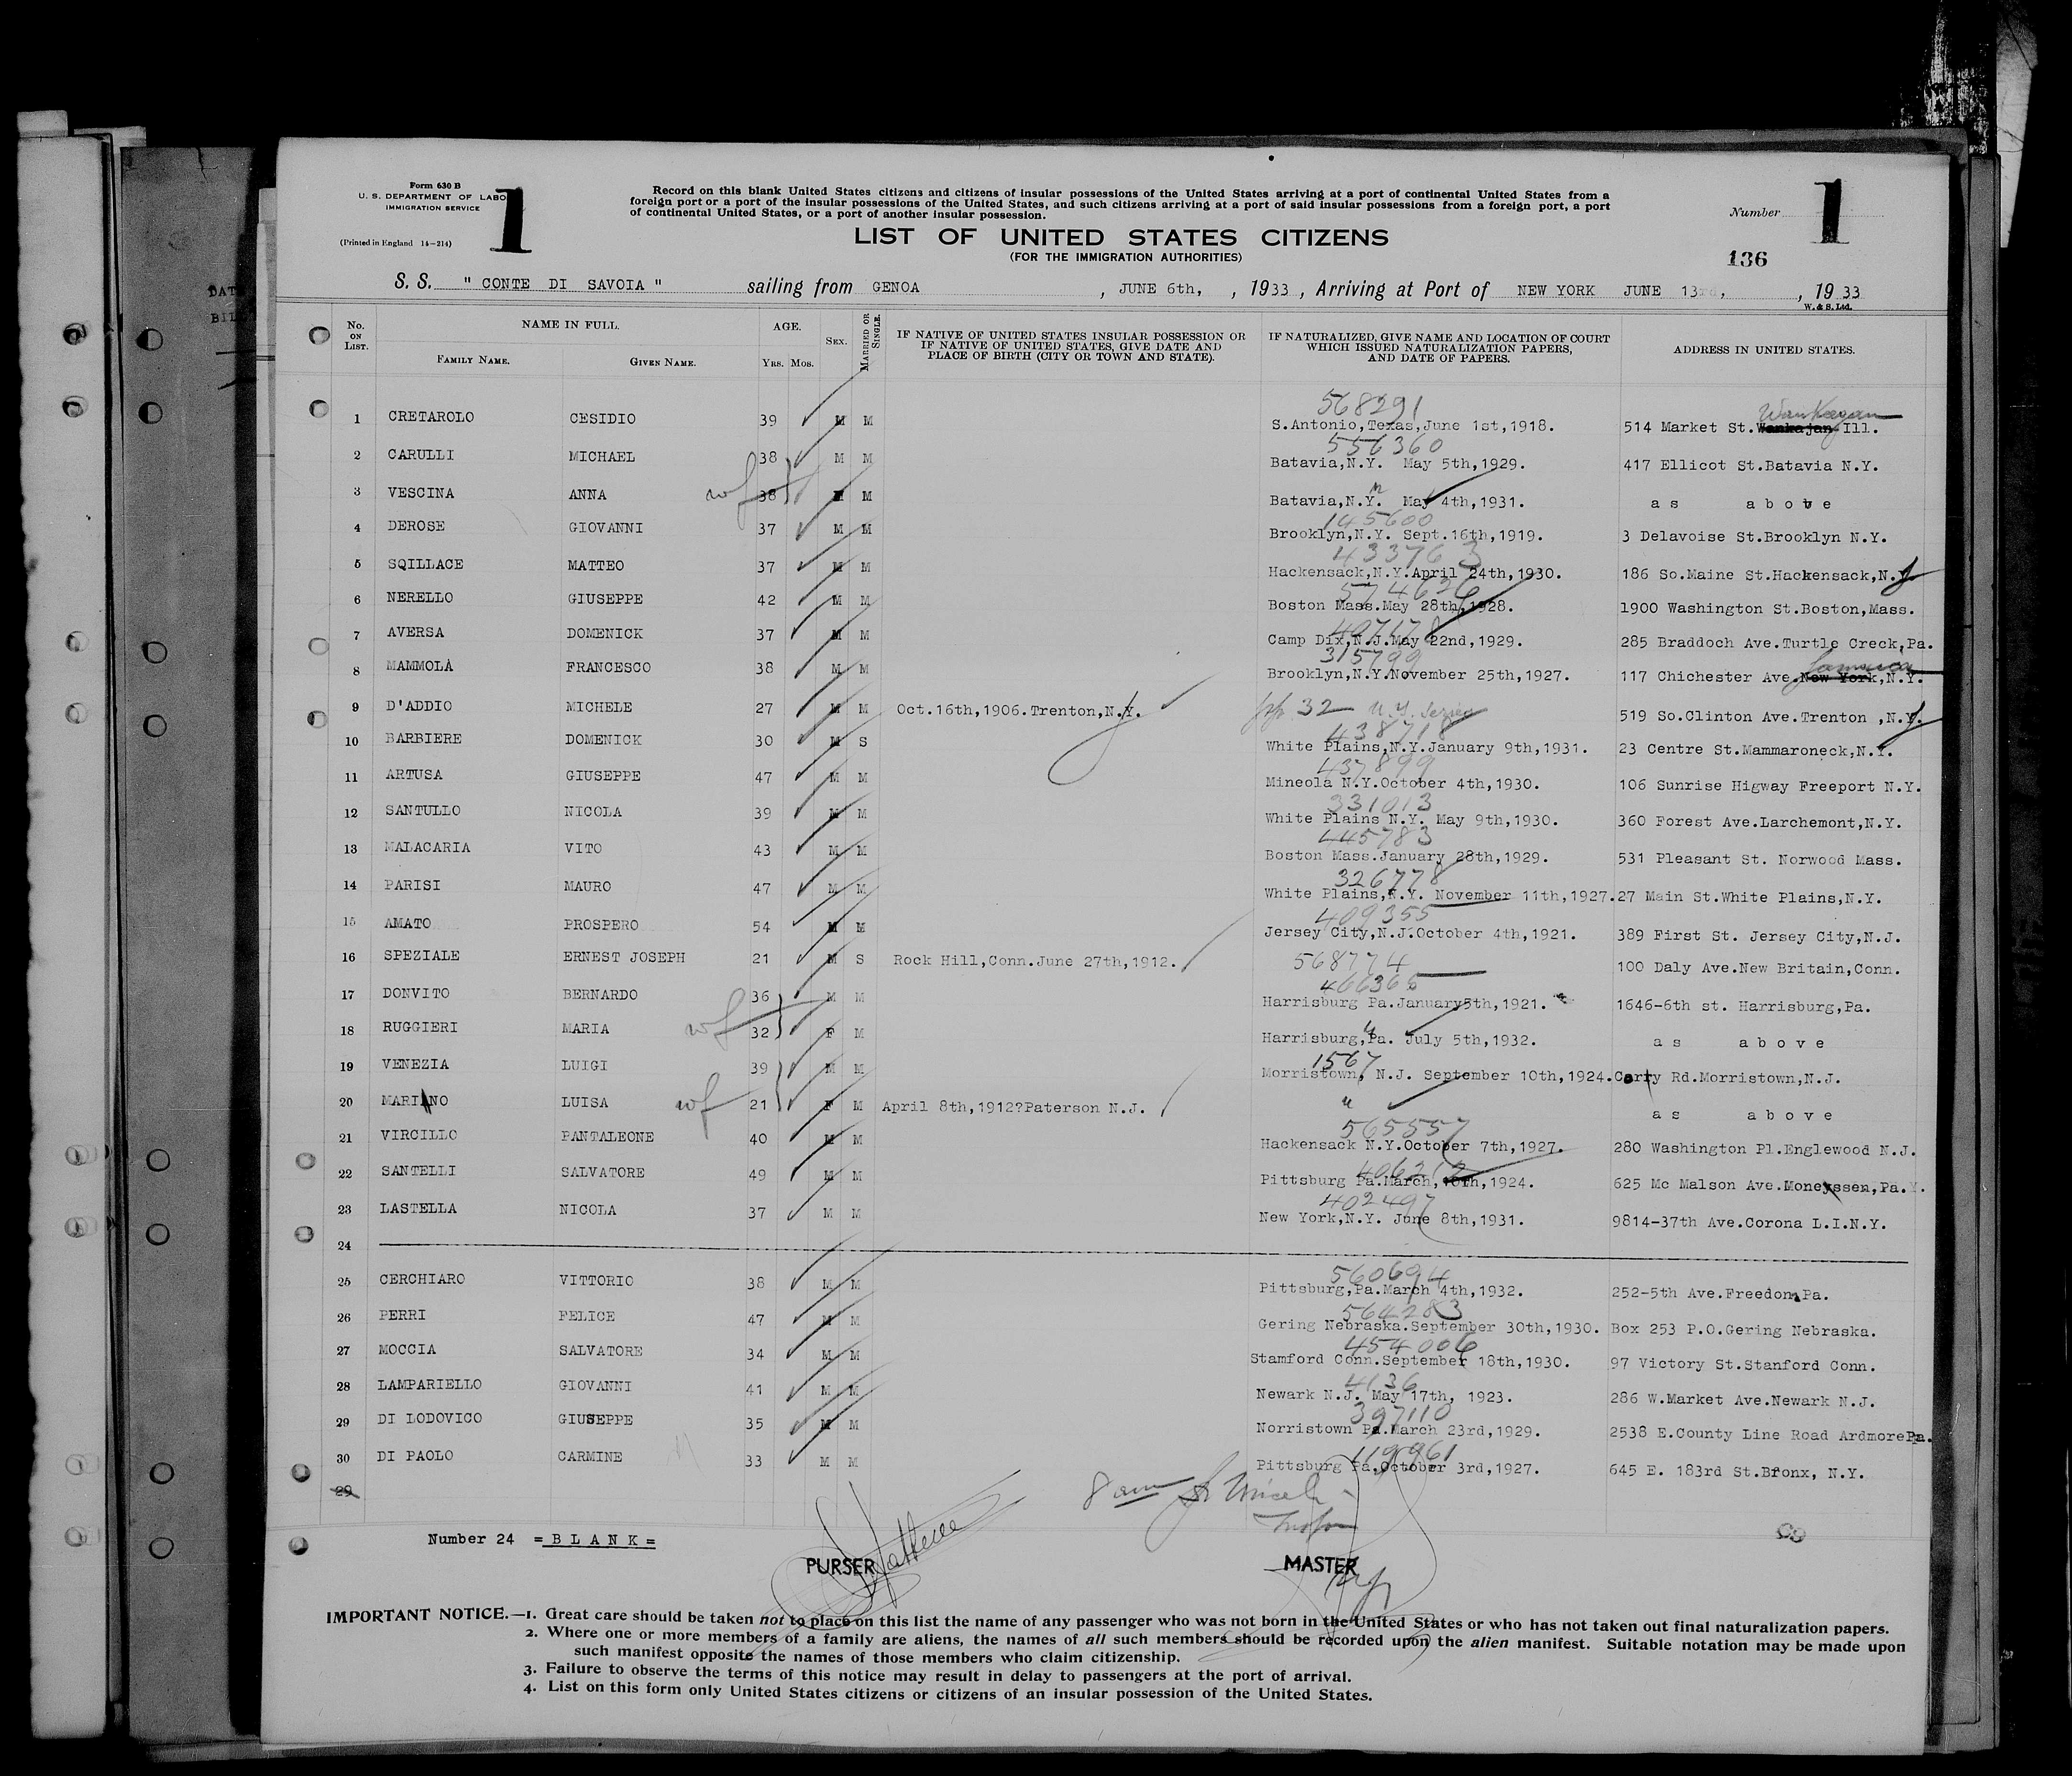 Form 630 B
U. S. DEPARTMENT OF LABO
IMMIGRATION SERVICE
(Printed in England 14-214)
1
Record on this blank United States citizens and citizens of insular possessions of the United States arriving at a port of continental United States from a
foreign port or a port of the insular possessions of the United States, and such citizens arriving at a port of said insular possessions from a foreign port, a port
of continental United States, or a port of another insular possession.
Number 1
LIST OF UNITED STATES CITIZENS
(FOR THE IMMIGRATION AUTHORITIES)
136
S. S. " CONTE DI SAVOIA " sailing from GENOA , JUNE 6th, , 1933 , Arriving at Port of NEW YORK JUNE 13rd, , 19 33
W. & S. Ltd.
No. ON LIST. NAME IN FULL. FAMILY NAME. GIVEN NAME. AGE. YRS. MOS. SEX. MARRIED OR SINGLE. IF NATIVE OF UNITED STATES INSULAR POSSESSION OR IF NATIVE OF UNITED STATES, GIVE DATE AND PLACE OF BIRTH (CITY OR TOWN AND STATE). IF NATURALIZED, GIVE NAME AND LOCATION OF COURT WHICH ISSUED NATURALIZATION PAPERS, AND DATE OF PAPERS. ADDRESS IN UNITED STATES.
568291 Waukegan
1 CRETAROLO CESIDIO 39 M M S.Antonio,Texas,June 1st,1918. 514 Market St.Wankajan Ill.
556360
2 CARULLI MICHAEL 38 M M Batavia,N.Y. May 5th,1929. 417 Ellicot St.Batavia N.Y.
3 VESCINA ANNA wf 38 M Batavia,N.Y. May 4th,1931. as above
145600
4 DEROSE GIOVANNI 37 M M Brooklyn,N.Y. Sept.16th,1919. 3 Delavoise St.Brooklyn N.Y.
433763
5 SQILLACE MATTEO 37 M M Hackensack,N.Y.April 24th,1930. 186 So.Maine St.Hackensack,N.J
574626
6 NERELLO GIUSEPPE 42 M M Boston Mass.May 28th,1928. 1900 Washington St.Boston,Mass.
7 AVERSA DOMENICK 37 M M Camp Dix,N.J.May 22nd,1929. 285 Braddoch Ave.Turtle Creck,Pa.
315799 Jamaica
8 MAMMOLA FRANCESCO 38 M M Brooklyn,N.Y.November 25th,1927. 117 Chichester Ave.New York,N.Y.
9 D'ADDIO MICHELE 27 M M Oct.16th,1906.Trenton,N.J. 32 N.Y. Series 519 So.Clinton Ave.Trenton ,N.J.
438718
10 BARBIERE DOMENICK 30 M S White Plains,N.Y.January 9th,1931. 23 Centre St.Mammaroneck,N.Y.
437899
11 ARTUSA GIUSEPPE 47 M M Mineola N.Y.October 4th,1930. 106 Sunrise Higway Freeport N.Y.
331013
12 SANTULLO NICOLA 39 M M White Plains N.Y. May 9th,1930. 360 Forest Ave.Larchemont,N.Y.
445783
13 MALACARIA VITO 43 M M Boston Mass.January 28th,1929. 531 Pleasant St. Norwood Mass.
326778
14 PARISI MAURO 47 M M White Plains,N.Y. November 11th,1927. 27 Main St.White Plains,N.Y.
409355
15 AMATO PROSPERO 54 M M Jersey City,N.J.October 4th,1921. 389 First St. Jersey City,N.J.
16 SPEZIALE ERNEST JOSEPH 21 M S Rock Hill,Conn.June 27th,1912. 568774 100 Daly Ave.New Britain,Conn.
466365
17 DONVITO BERNARDO 36 M M Harrisburg Pa.January5th,1921. 1646-6th st. Harrisburg,Pa.
18 RUGGIERI MARIA wf 32 F M Harrisburg,Pa. July 5th,1932. as above
1567
19 VENEZIA LUIGI 39 M M Morristown, N.J. September 10th,1924. Corry Rd.Morristown,N.J.
20 MARIANO LUISA wf 21 F M April 8th,1912?Paterson N.J. " as above
565557
21 VIRCILLO PANTALEONE 40 M M Hackensack N.Y.October 7th,1927. 280 Washington Pl.Englewood N.J.
406212
22 SANTELLI SALVATORE 49 M M Pittsburg Pa.March,10th,1924. 625 Mc Malson Ave.Moneyssen,Pa.
402497
23 LASTELLA NICOLA 37 M M New York,N.Y. June 8th,1931. 9814-37th Ave.Corona L.I.N.Y.
24
560694
25 CERCHIARO VITTORIO 38 M M Pittsburg,Pa.March 4th,1932. 252-5th Ave.Freedom Pa.
564283
26 PERRI FELICE 47 M M Gering Nebraska.September 30th,1930. Box 253 P.O.Gering Nebraska.
454006
27 MOCCIA SALVATORE 34 M M Stamford Conn.September 18th,1930. 97 Victory St.Stanford Conn.
4136
28 LAMPARIELLO GIOVANNI 41 M M Newark N.J. May 17th, 1923. 286 W.Market Ave.Newark N.J.
397110
29 DI LODOVICO GIUSEPPE 35 M M Norristown Pa.March 23rd,1929. 2538 E.County Line Road ArdmorePa.
119961
30 DI PAOLO CARMINE 33 M M Pittsburg Pa.October 3rd,1927. 645 E. 183rd St.Bronx, N.Y.
29
8 am
Number 24 = B L A N K =
PURSER MASTER
IMPORTANT NOTICE.—1. Great care should be taken not to place on this list the name of any passenger who was not born in the United States or who has not taken out final naturalization papers.
2. Where one or more members of a family are aliens, the names of all such members should be recorded upon the alien manifest. Suitable notation may be made upon
such manifest opposite the names of those members who claim citizenship.
3. Failure to observe the terms of this notice may result in delay to passengers at the port of arrival.
4. List on this form only United States citizens or citizens of an insular possession of the United States.